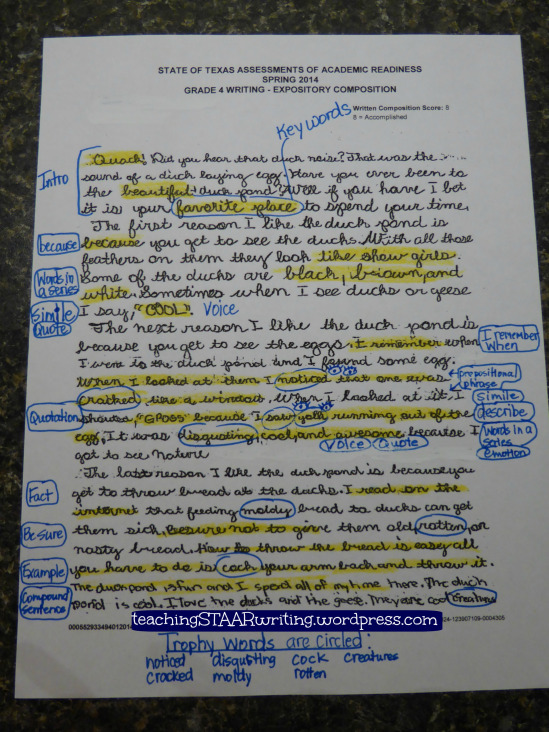 STATE OF TEXAS ASSESSMENTS OF ACADEMIC READINESS
SPRING 2014
GRADE 4 WRITING - EXPOSITORY COMPOSITION
Key words
Written Composition Score: 8
8 = Accomplished
Intro
Quack! Did you hear that duck noise? That was the
sound of a duck laying egg. Have you ever been to
the beautiful duck pond? Well if you have I bet
it is your favorite place to spend your time.
The first reason I like the duck pond is
because
because you get to see the ducks. With all those
feathers on them they look like show girls.
Words in a series
Some of the ducks are black, brown, and
white. Sometimes when I see ducks or geese
Simile
Quote
I say, "COOL". Voice
The next reason I like the duck pond is
because you get to see the eggs. I remember when
I remember when
I went to the duck pond and I found some egg.
When I looked at them I noticed that one was
prepositional phrase
cracked like a window. When I looked at it I
simile
Quotation
shouted, "GROSS" because I saw yolk running out of the
describe
egg. It was disgusting, cool, and awesome because I
words in a series
Voice Quote
emotion
got to see nature
The last reason I like the duck pond is because you
Fact
get to throw bread at the ducks. I read on the
internet that feeding moldy bread to ducks can get
Be sure
them sick. Be sure not to give them old, rotten, or
nasty bread. How to throw the bread is easy all
Example
you have to do is cock your arm back and throw it.
Compound sentence
The duck pond is fun and I spend all of my time there. The duck
pond is cool. I love the ducks and the geese. They are cool creatures
teachingSTAARwriting.wordpress.com
Trophy words are circled:
noticed disgusting cock creatures
cracked moldy rotten